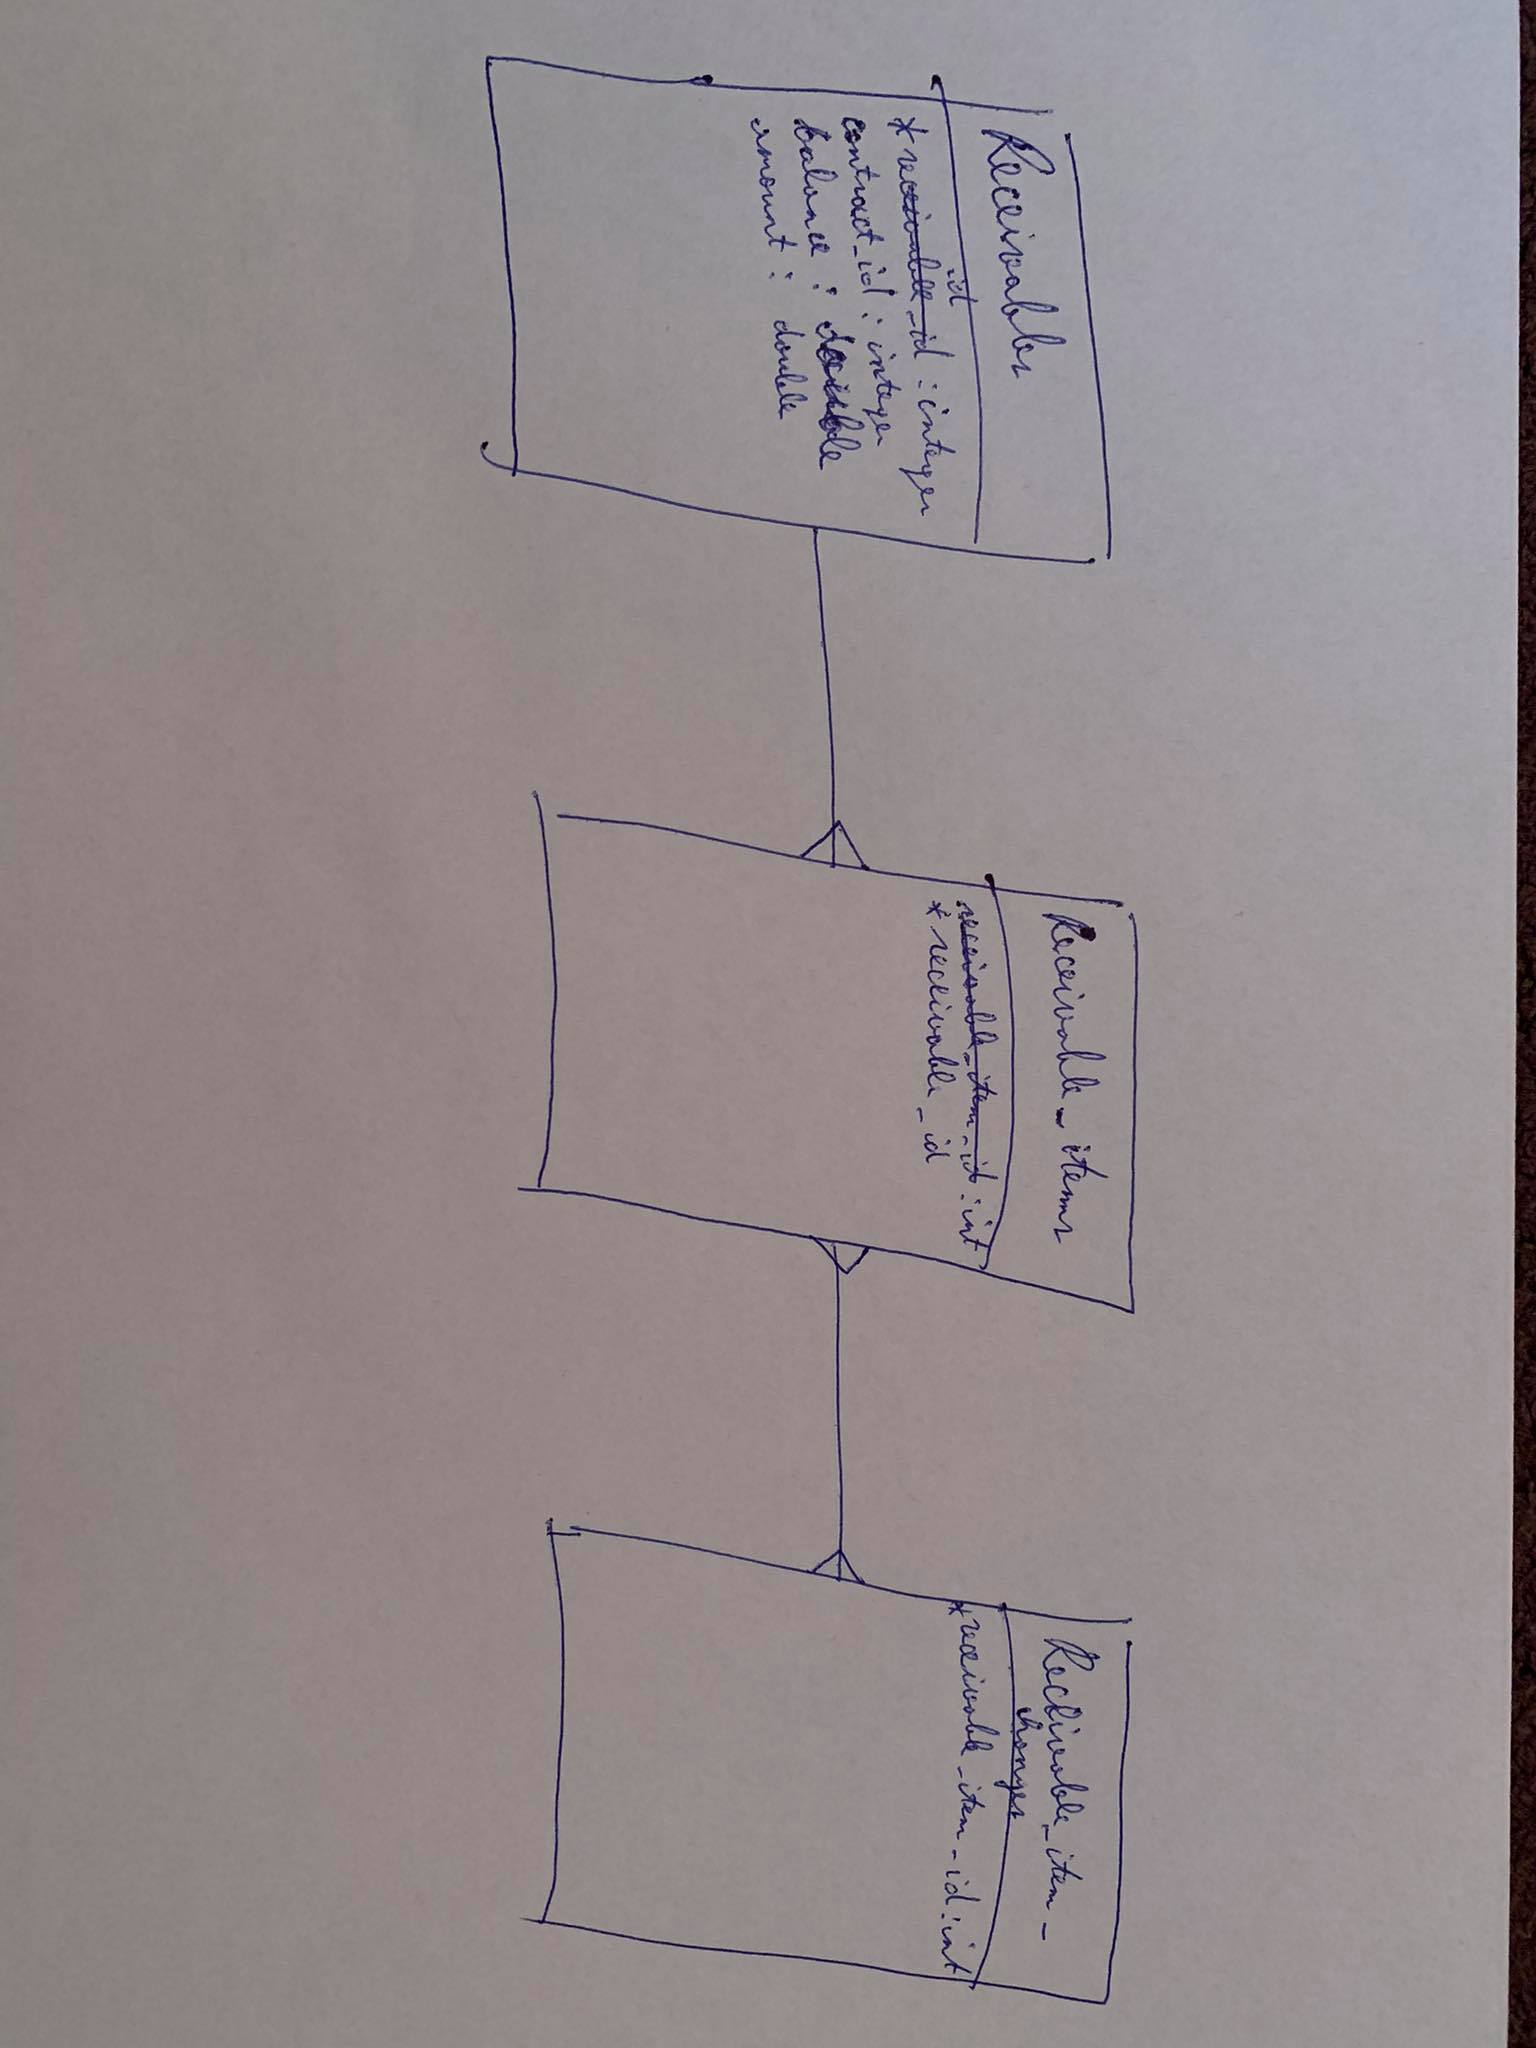 Receivables
id
*receivable_id : integer
contract_id : integer
balance : double
amount : double
Receivable_items
receivable_item_id : int
* receivable_id
Receivable_item_
changes
*receivable_item_id : int